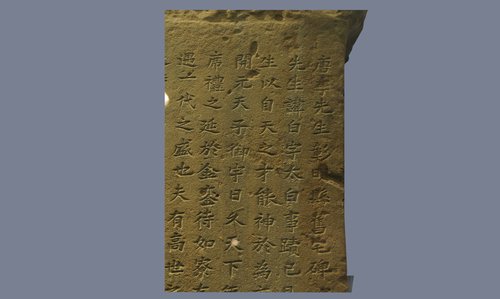 唐李先生彰明縣舊宅碑
先生諱白字太白事蹟已具
生以自天之才能神於為
開元天子御宇日久天下
席禮之延於金鑾待如寮友
遇一代之盛也夫有高世之